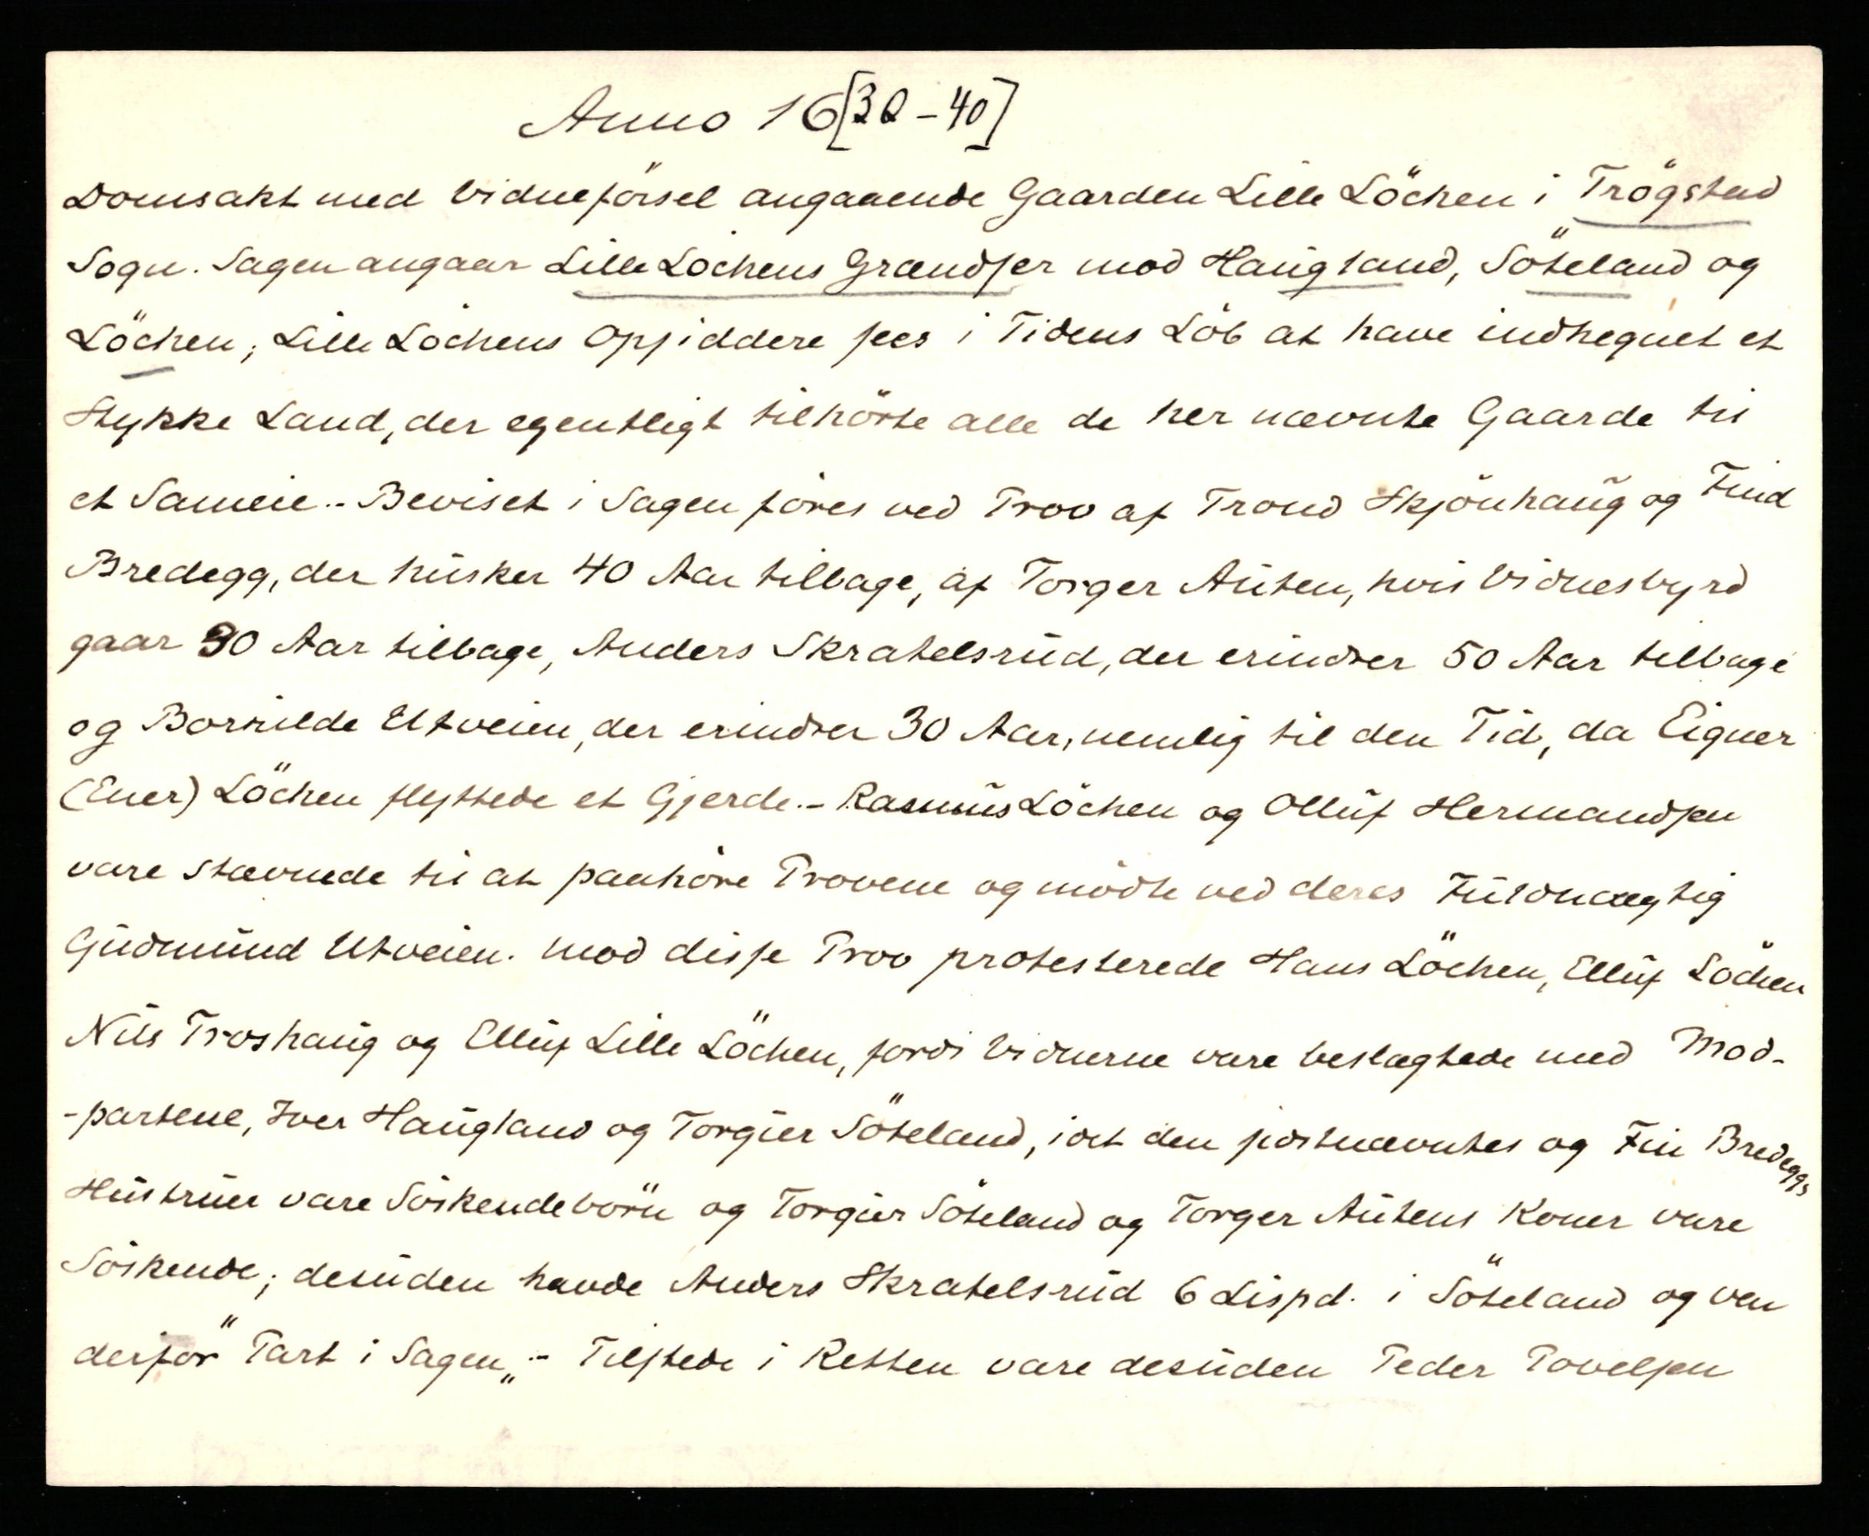 Anno 16[30-40]
Domsakt med Vidneförsel angaaende Gaarden Lille Löchen i Trögstad
Sogn. Sagen angaar Lille Löchens Grændser mod Haugland, Söteland og
Löchen; Lille Löchens Opsiddere sees i Tidens Löb at have indhegnet et
Stykke Land, der egentligt tilhörte alle de her nævnte Gaarde til
et Sameie.- Beviset i Sagen föres ved Prov af Trond Skjönhaug og Find
Bredegg, der husker 40 Aar tilbage, af Torger Auten, hvis Vidnesbyrd
gaar 30 Aar tilbage, Anders Skratelsrud, der erindrer 50 Aar tilbage
og Borhilde Utveien, der erindrer 30 Aar, nemlig til den Tid, da Eigner
(Ener) Löchen flyttede et Gjerde.- Rasmus Löchen og Olluf Hermandsen
vare stævnede til at paahöre Provene og mödte ved deres Fuldmægtig
Gudmund Utveien. Mod disse Prov protesterede Hans Löchen, Elluf Löchen
Nils Troshaug og Elluf Lille Löchen, fordi Vidnerne vare beslægtede med Mod-
-partene, Iver Haugland og Torgier Söteland, idet den sidstnævntes og Fin Bredeggs
Hustruer vare Söskendebörn og Torgier Söteland og Torger Autens Koner vare
Söskende; desuden havde Anders Skratelsrud 6 Lispd. i Söteland og var
derfor "Part i Sagen„.- Tilstede i Retten vare desuden Peder Povelsen